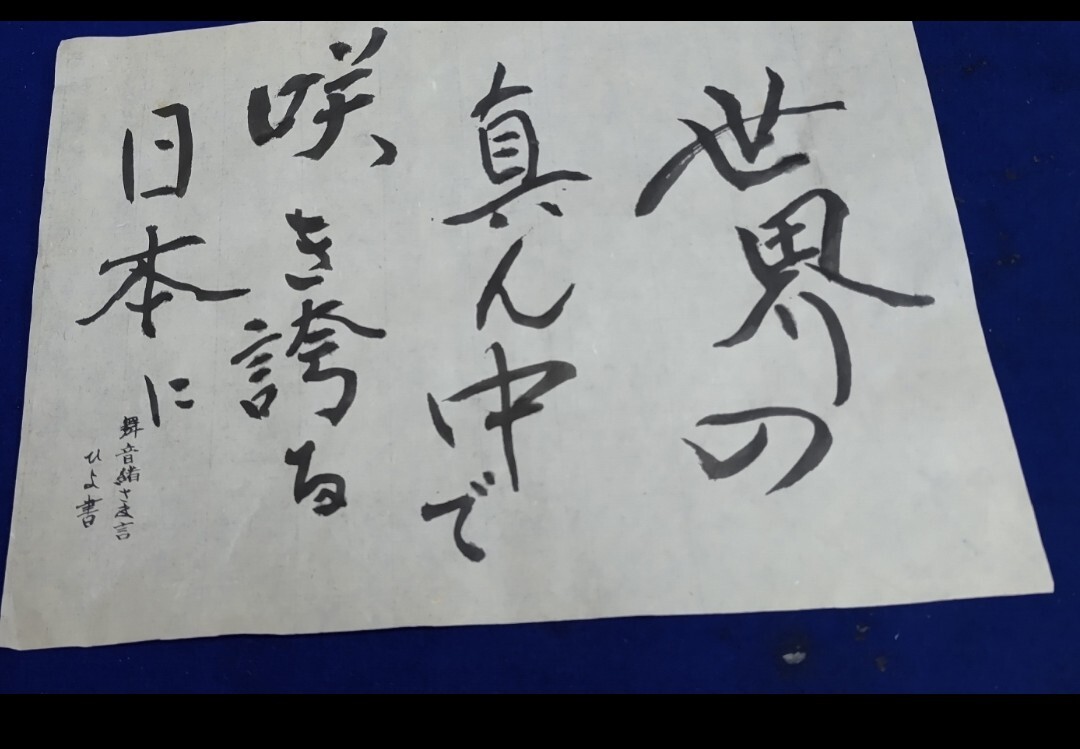 世界の
真ん中で
咲き誇る
日本に
舞音緒さま言
ひよ書